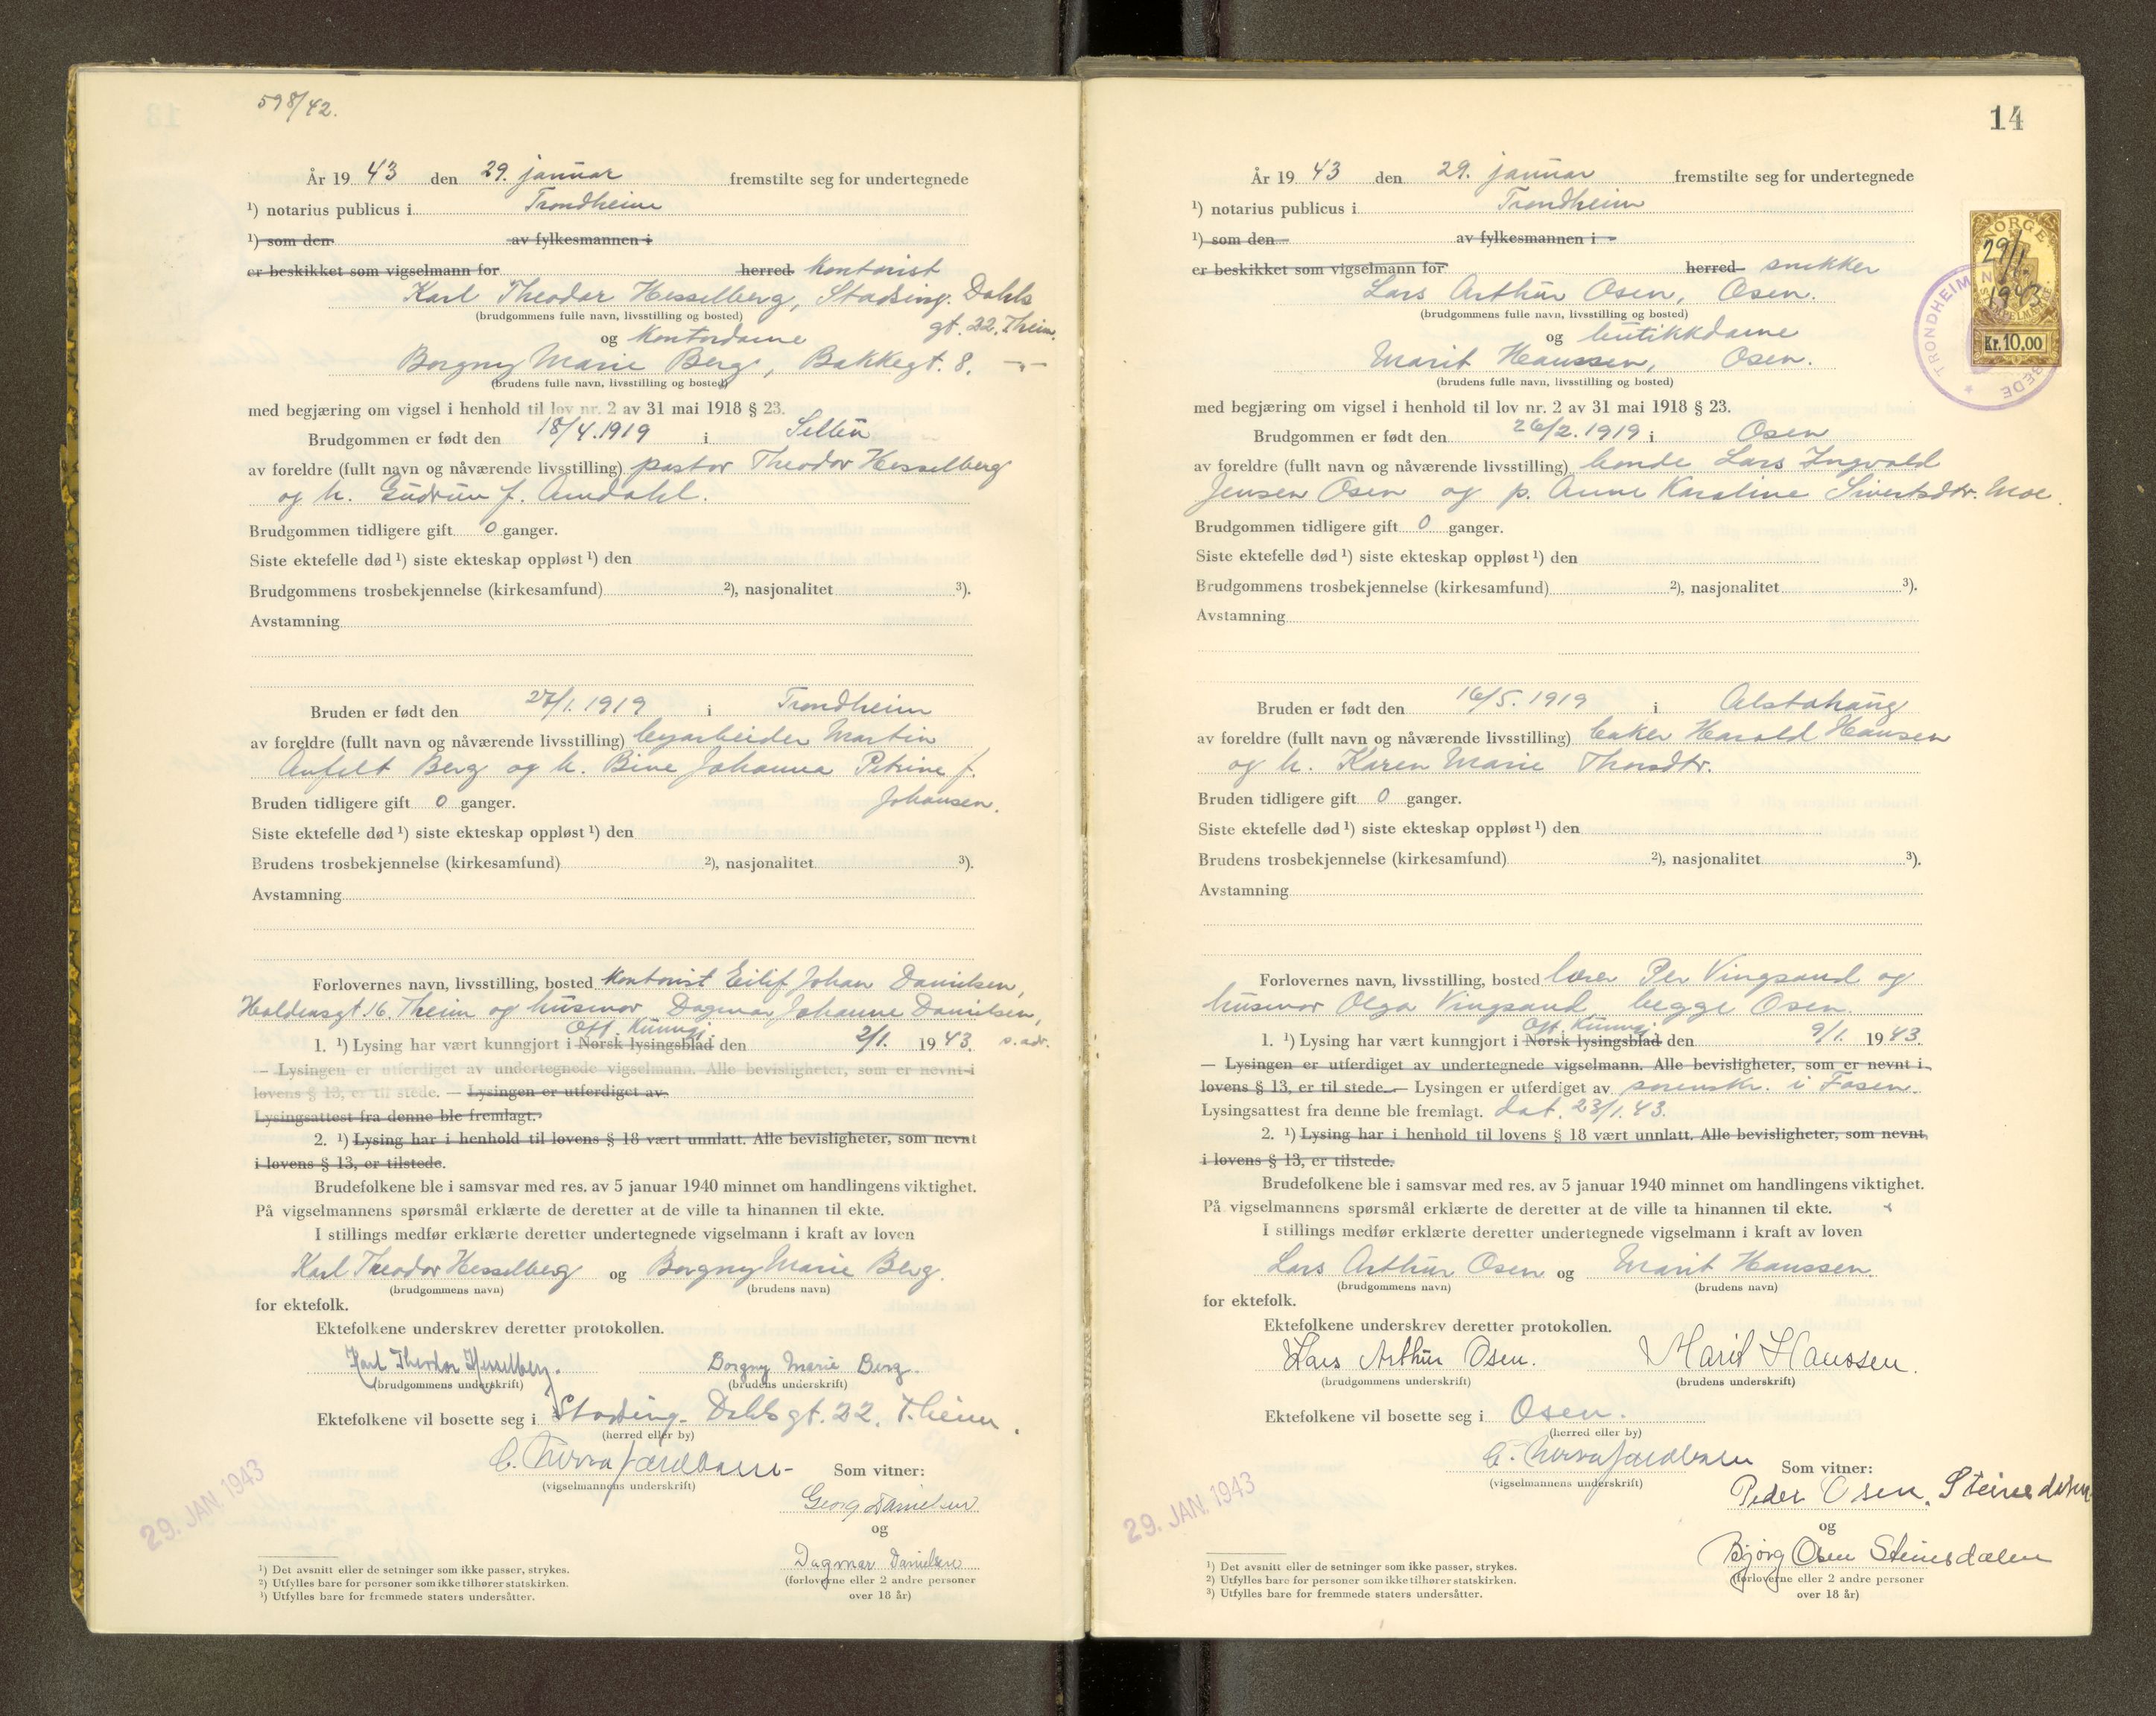 598/42.
År 19 43 den 29. januar fremstilte seg for undertegnede
¹) notarius publicus i Trondheim
¹) som den av fylkesmannen i
er beskikket som vigselmann for herred kontorist
Karl Theodor Hesselberg, Stadsing. Dahls
(brudgommens fulle navn, livsstilling og bosted)
gt. 22. Theim.
og kontordame
Borgny Marie Berg, Bakkegt. 8. — " —
(brudens fulle navn, livsstilling og bosted)
med begjæring om vigsel i henhold til lov nr. 2 av 31 mai 1918 § 23.
Brudgommen er født den 18/4.1919 i Selbu
av foreldre (fullt navn og nåværende livsstilling) pastor Theodor Hesselberg
og h. Gudrun f. Amdahl.
Brudgommen tidligere gift 0 ganger.
Siste ektefelle død ¹) siste ekteskap oppløst ¹) den
Brudgommens trosbekjennelse (kirkesamfund) ²), nasjonalitet ³).
Avstamning
Bruden er født den 27/1. 1919 i Trondheim
av foreldre (fullt navn og nåværende livsstilling) byarbeider Martin
Anfelt Berg og h. Bine Johanna Petrine f.
Johansen.
Bruden tidligere gift 0 ganger.
Siste ektefelle død ¹) siste ekteskap oppløst ¹) den
Brudens trosbekjennelse (kirkesamfund) ²), nasjonalitet ³).
Avstamning
Forlovernes navn, livsstilling, bosted kontorist Eilif Johan Danielsen,
Haldensgt 16. Theim og husmor Dagmar Johanne Danielsen,
Off. Kunngj. s. adr.
1. ¹) Lysing har vært kunngjort i Norsk lysingsblad den 2/1. 19 43.
— Lysingen er utferdiget av undertegnede vigselmann. Alle bevisligheter, som er nevnt i
lovens § 13, er til stede. — Lysingen er utferdiget av
Lysingsattest fra denne ble fremlagt.
2. ¹) Lysing har i henhold til lovens § 18 vært unnlatt. Alle bevisligheter, som nevnt
i lovens § 13, er tilstede.
Brudefolkene ble i samsvar med res. av 5 januar 1940 minnet om handlingens viktighet.
På vigselmannens spørsmål erklærte de deretter at de ville ta hinannen til ekte.
I stillings medfør erklærte deretter undertegnede vigselmann i kraft av loven
Karl Theodor Hesselberg og Borgny Marie Berg.
(brudgommens navn) (brudens navn)
for ektefolk.
Ektefolkene underskrev deretter protokollen.
Karl Theodor Hesselberg. Borgny Marie Berg.
(brudgommens underskrift) (brudens underskrift)
Ektefolkene vil bosette seg i Stadsing. Dahls gt. 22. T.heim.
(herred eller by)
Som vitner:
(vigselmannens underskrift)
Georg Danielsen
og
Dagmar Danielsen
(forloverne eller 2 andre personer
over 18 år)
29. JAN. 1943
¹) Det avsnitt eller de setninger som ikke passer, strykes.
²) Utfylles bare for personer som ikke tilhører statskirken.
³) Utfylles bare for fremmede staters undersåtter.
14
År 19 43 den 29. januar fremstilte seg for undertegnede
¹) notarius publicus i Trondheim
¹) som den av fylkesmannen i
er beskikket som vigselmann for herred snikker
Lars Arthur Osen, Osen.
(brudgommens fulle navn, livsstilling og bosted)
og butikkdame
Marit Hanssen, Osen.
(brudens fulle navn, livsstilling og bosted)
NORGE
29/1
1943
Kr. 10,00
TRONDHEIM
med begjæring om vigsel i henhold til lov nr. 2 av 31 mai 1918 § 23.
Brudgommen er født den 26/2. 1919 i Osen
av foreldre (fullt navn og nåværende livsstilling) bonde Lars Ingvald
Jensen Osen og p. Anne Karoline Sivertsdtr. Moe.
Brudgommen tidligere gift 0 ganger.
Siste ektefelle død ¹) siste ekteskap oppløst ¹) den
Brudgommens trosbekjennelse (kirkesamfund) ²), nasjonalitet ³).
Avstamning
Bruden er født den 16/5. 1919 i Alstahaug
av foreldre (fullt navn og nåværende livsstilling) baker Harald Hansen
og h. Karen Marie Thorsdtr.
Bruden tidligere gift 0 ganger.
Siste ektefelle død ¹) siste ekteskap oppløst ¹) den
Brudens trosbekjennelse (kirkesamfund) ²), nasjonalitet ³).
Avstamning
Forlovernes navn, livsstilling, bosted lærer Per Vingsand og
husmor Olga Vingsand, begge Osen.
Off. Kunngj.
1. ¹) Lysing har vært kunngjort i Norsk lysingsblad den 9/1. 19 43.
— Lysingen er utferdiget av undertegnede vigselmann. Alle bevisligheter, som er nevnt i
lovens § 13, er til stede. — Lysingen er utferdiget av sorenskr. i Fosen.
Lysingsattest fra denne ble fremlagt. dat. 23/1. 43.
2. ¹) Lysing har i henhold til lovens § 18 vært unnlatt. Alle bevisligheter, som nevnt,
i lovens § 13, er tilstede.
Brudefolkene ble i samsvar med res. av 5 januar 1940 minnet om handlingens viktighet.
På vigselmannens spørsmål erklærte de deretter at de ville ta hinannen til ekte.
I stillings medfør erklærte deretter undertegnede vigselmann i kraft av loven
Lars Arthur Osen og Marit Hanssen.
(brudgommens navn) (brudens navn)
for ektefolk.
Ektefolkene underskrev deretter protokollen.
Lars Arthur Osen. Marit Hanssen.
(brudgommens underskrift) (brudens underskrift)
Ektefolkene vil bosette seg i Osen.
(herred eller by)
Som vitner:
(vigselmannens underskrift)
Peder Osen, Steinsdalen
og
Bjørg Osen Steinsdalen
(forloverne eller 2 andre personer
over 18 år)
29. JAN. 1943
¹) Det avsnitt eller de setninger som ikke passer, strykes.
²) Utfylles bare for personer som ikke tilhører statskirken.
³) Utfylles bare for fremmede staters undersåtter.